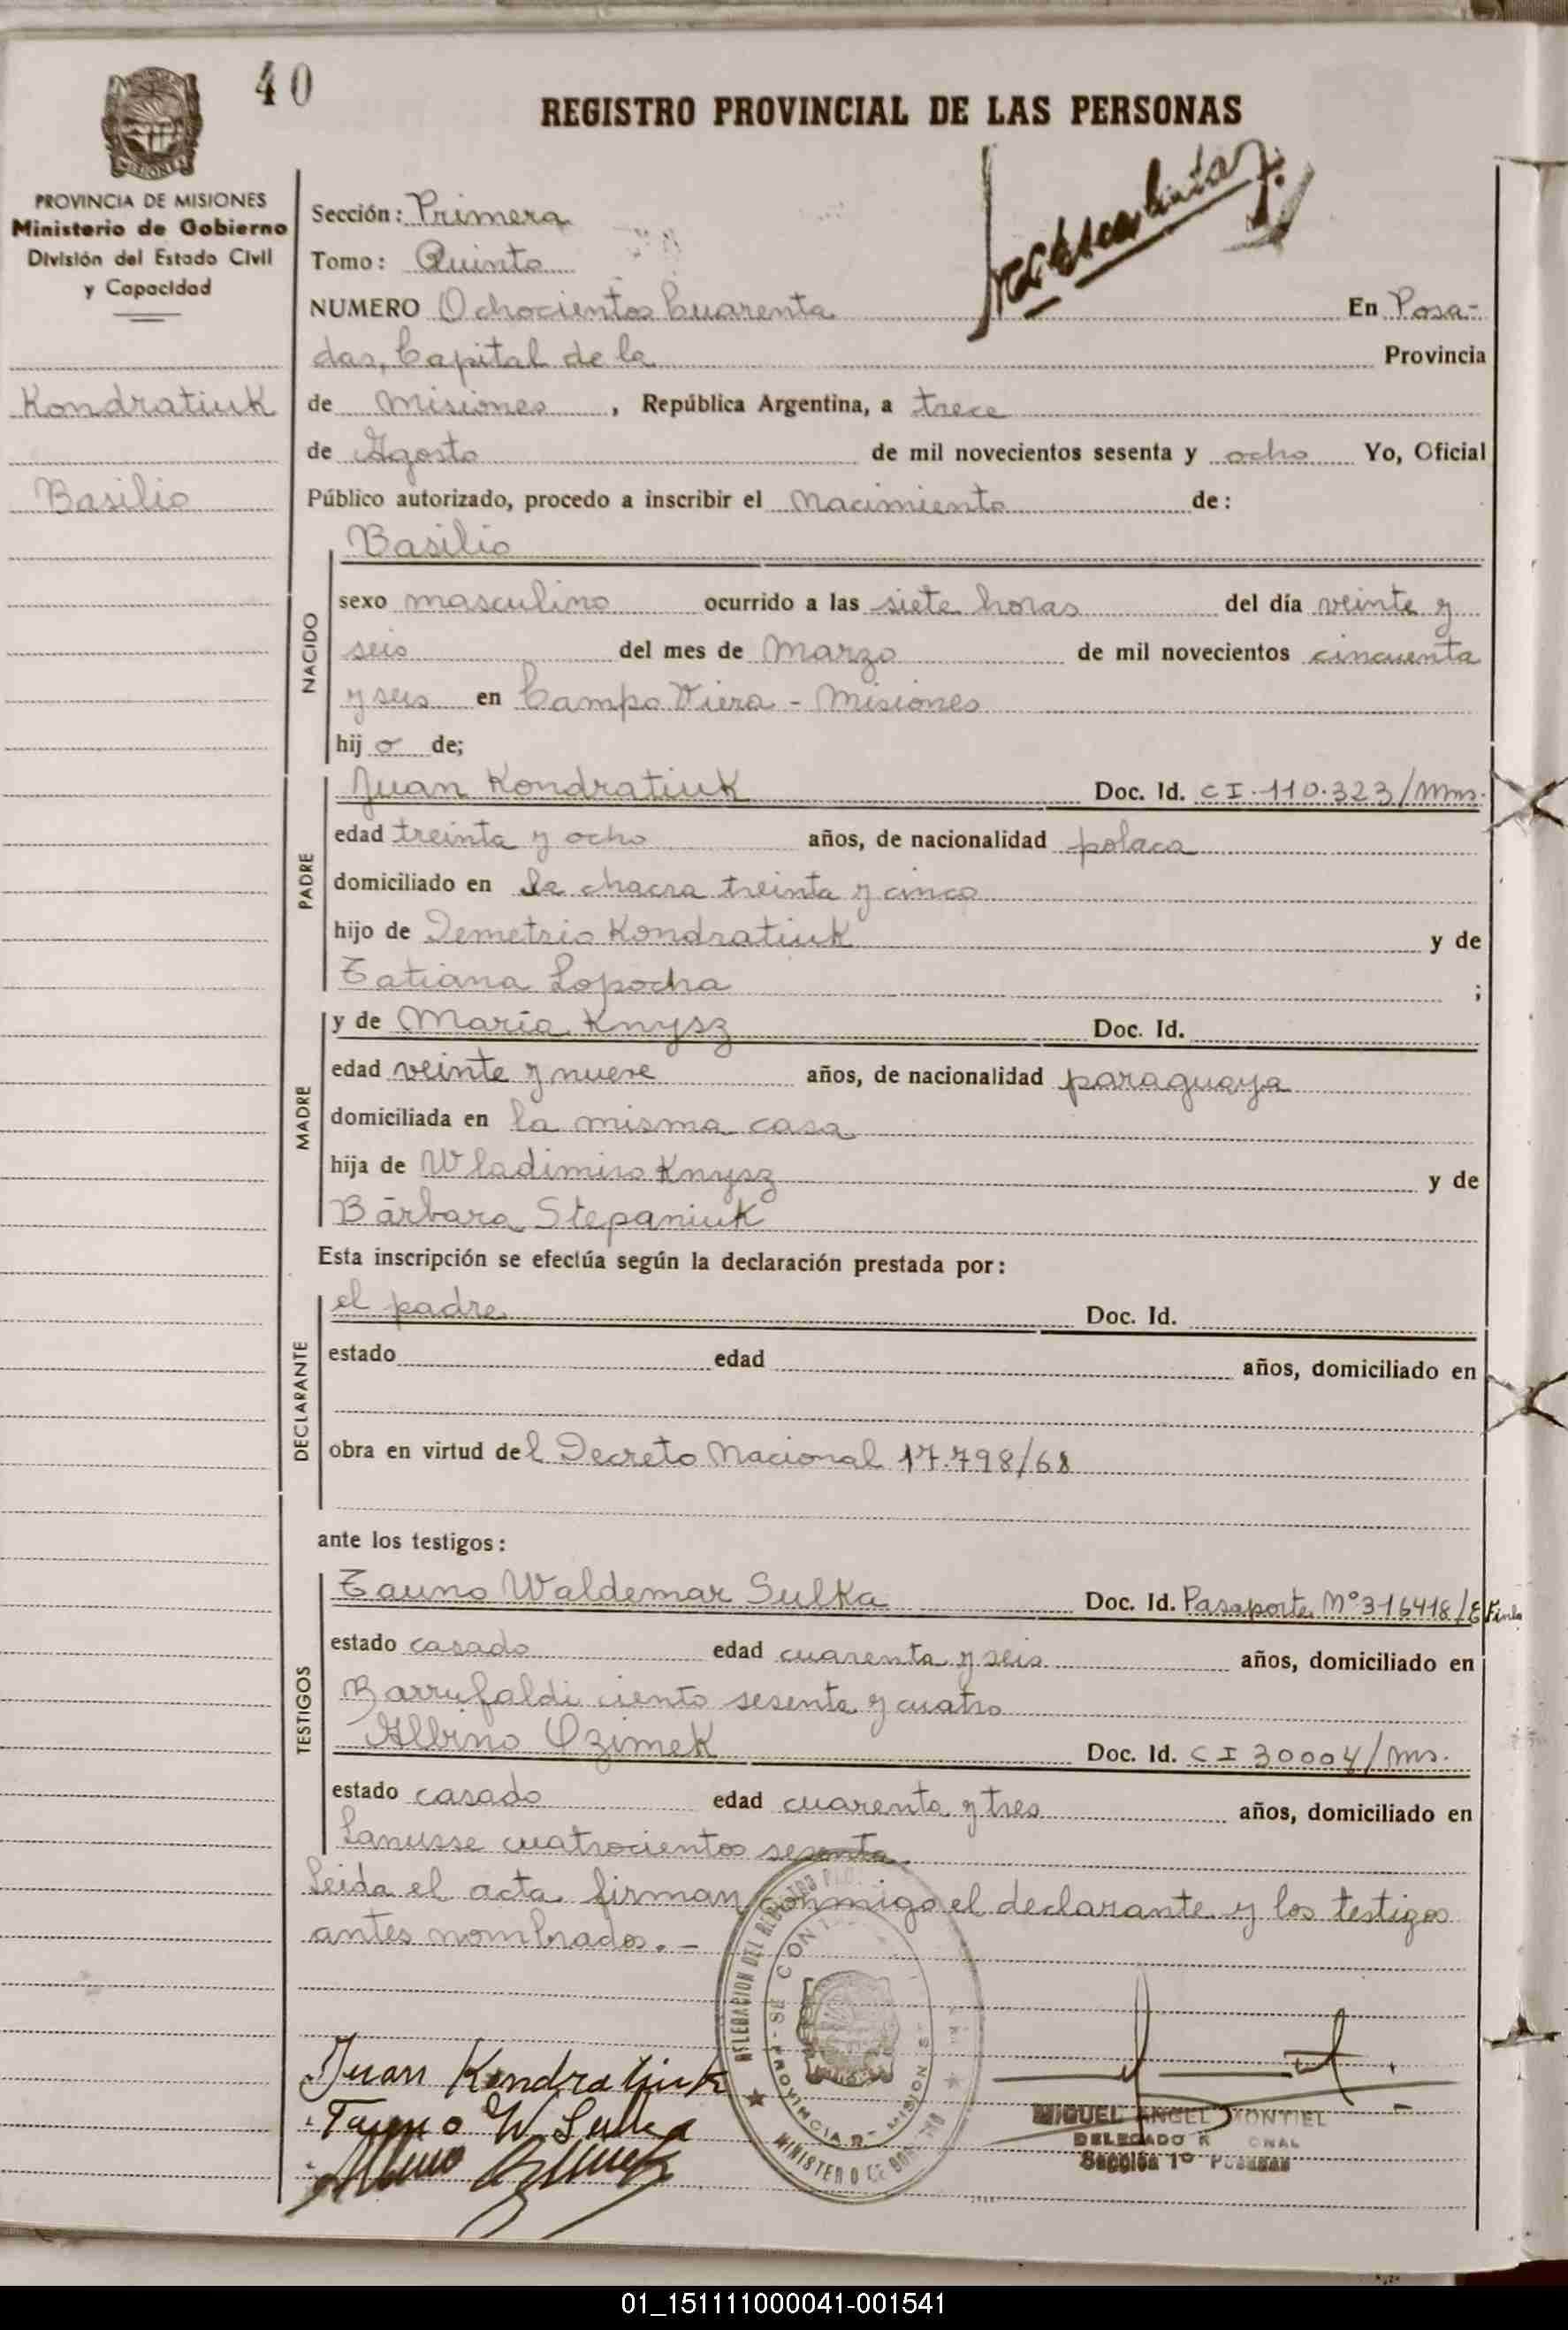 40
REGISTRO PROVINCIAL DE LAS PERSONAS
MISIONES
PROVINCIA DE MISIONES
Ministerio de Gobierno
División del Estado Civil
y Capacidad
Kondratiuk
Basilio
Sección: Primera
Tomo: Quinto
NUMERO Ochocientos Cuarenta En Posa-
das, Capital de la Provincia
de Misiones, República Argentina, a trece
de Agosto de mil novecientos sesenta y ocho Yo, Oficial
Público autorizado, procedo a inscribir el Nacimiento de:
NACIDO
Basilio
sexo masculino ocurrido a las siete horas del día veinte y
seis del mes de Marzo de mil novecientos cincuenta
y seis en Campo Viera - Misiones
hijo de;
PADRE
Juan Kondratiuk Doc. Id. CI-110.323/Mns.
edad treinta y ocho años, de nacionalidad polaca
domiciliado en la chacra treinta y cinco
hijo de Demetrio Kondratiuk y de
Tatiana Lopocha ;
MADRE
y de María Knysz Doc. Id.
edad veinte y nueve años, de nacionalidad paraguaya
domiciliada en la misma casa
hija de Wladimiro Knysz y de
Bárbara Stepaniuk
Esta inscripción se efectúa según la declaración prestada por:
DECLARANTE
el padre Doc. Id.
estado edad años, domiciliado en
obra en virtud del Decreto Nacional 17.798/68
ante los testigos:
TESTIGOS
Tauno Waldemar Sulka Doc. Id. Pasaporte N° 316418/E Finla
estado casado edad cuarenta y seis años, domiciliado en
Barrufaldi ciento sesenta y cuatro
Albino Ozimek Doc. Id. CI 30004/Ms.
estado casado edad cuarenta y tres años, domiciliado en
Lanusse cuatrocientos sesenta
Leida el acta firman conmigo el declarante y los testigos
antes nombrados.-
DELEGACION DEL REGISTRO
PROVINCIA MISIONES
MINISTERIO DE
Juan Kondratiuk
Tauno W Sulka
Albino Ozimek
MIGUEL ANGEL MONTIEL
DELEGADO
Sección 1° Posadas
01_151111000041-001541